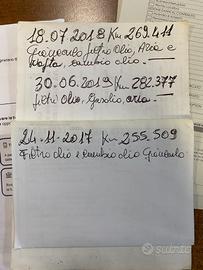 18.07.2018 Km 269.411
Giancarlo filtro olio, Aria e
Nafta, cambio olio.
30-06.2019 Km 282.377
filtri olio, Gasolio, aria.
24-11-2017 Km 255.509
Filtro olio e cambio olio Giancarlo
subito